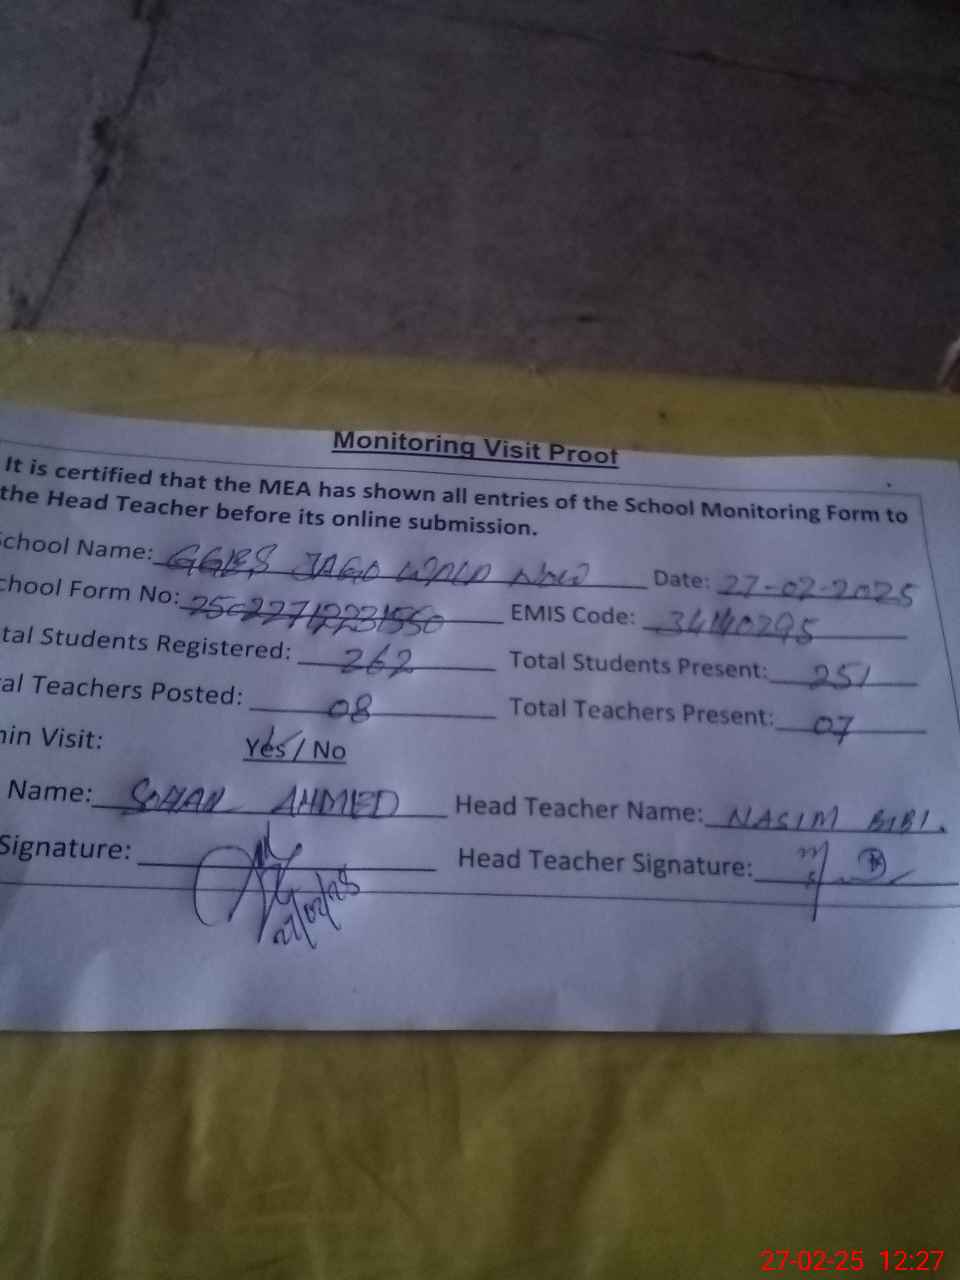 Monitoring Visit Proof
It is certified that the MEA has shown all entries of the School Monitoring Form to
the Head Teacher before its online submission.
School Name: JAGO WORLD Date: 27-02-2025
chool Form No: EMIS Code: 34140295
tal Students Registered: 262 Total Students Present: 251
al Teachers Posted: 08 Total Teachers Present: 07
in Visit: Yes / No
Name: AHMED Head Teacher Name: NASIM BIBI.
Signature: Head Teacher Signature:
27/02/25
27-02-25 12:27